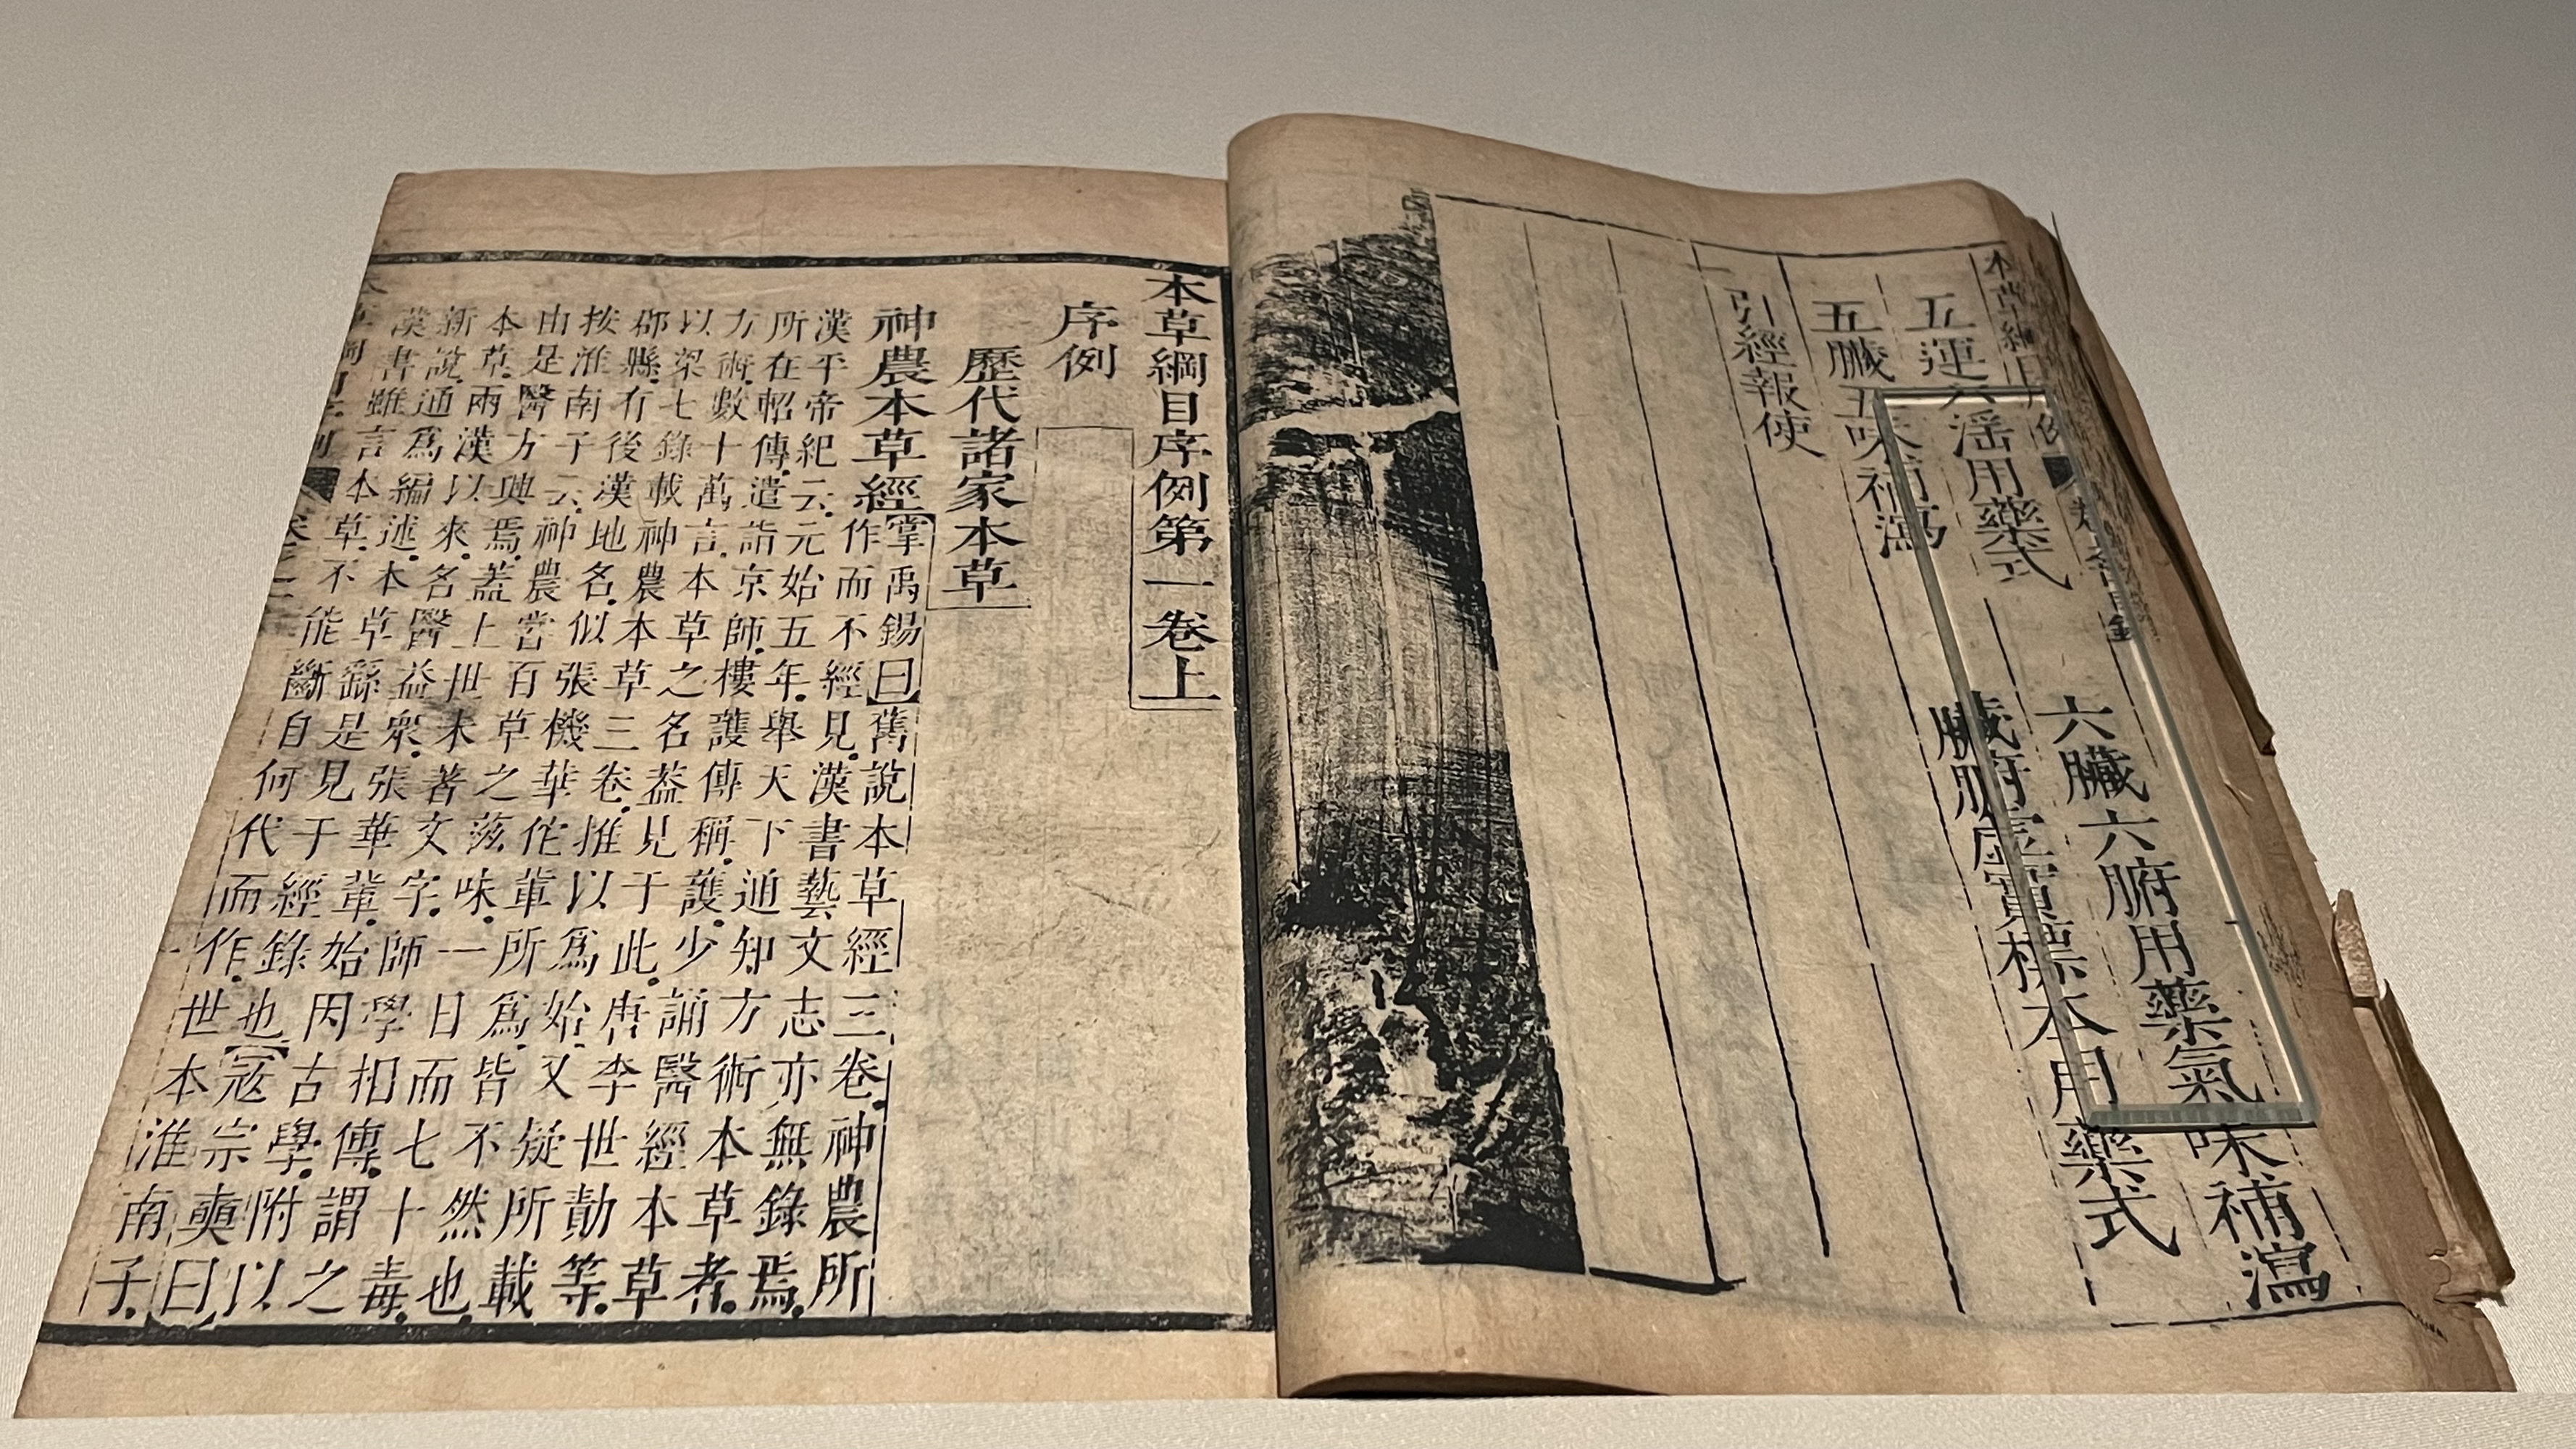 本草綱目序例
五運六淫用藥式　六臟六腑用藥氣味補瀉
五臟五味補瀉　臟腑虛實標本用藥式
引經報使
本草綱目序例第一卷上
序例
歷代諸家本草
神農本草經【掌禹錫曰】舊說本草經三卷。神農所
作而不經見。漢書藝文志亦無錄焉。
漢平帝紀云。元始五年。舉天下通知方術本草者。
所在軺傳。遣詣京師。樓護傳稱。護少誦醫經本草
方術。數十萬言。本草之名蓋見于此。唐李世勣等。
以梁七錄載神農本草三卷。推以爲始。又疑所載
郡縣有後漢地名。似張機華佗輩所爲。皆不然也。
按淮南子云。神農嘗百草之滋味。一日而七十毒。
由是醫方興焉。蓋上世未著文字。師學相傳。謂之
本草。兩漢以來。名醫益衆。張華輩。始因古學。附以
新說。通爲編述。本草繇是見于經錄也。【寇宗奭曰】
漢書雖言本草。不能斷自何代而作。世本淮南子。